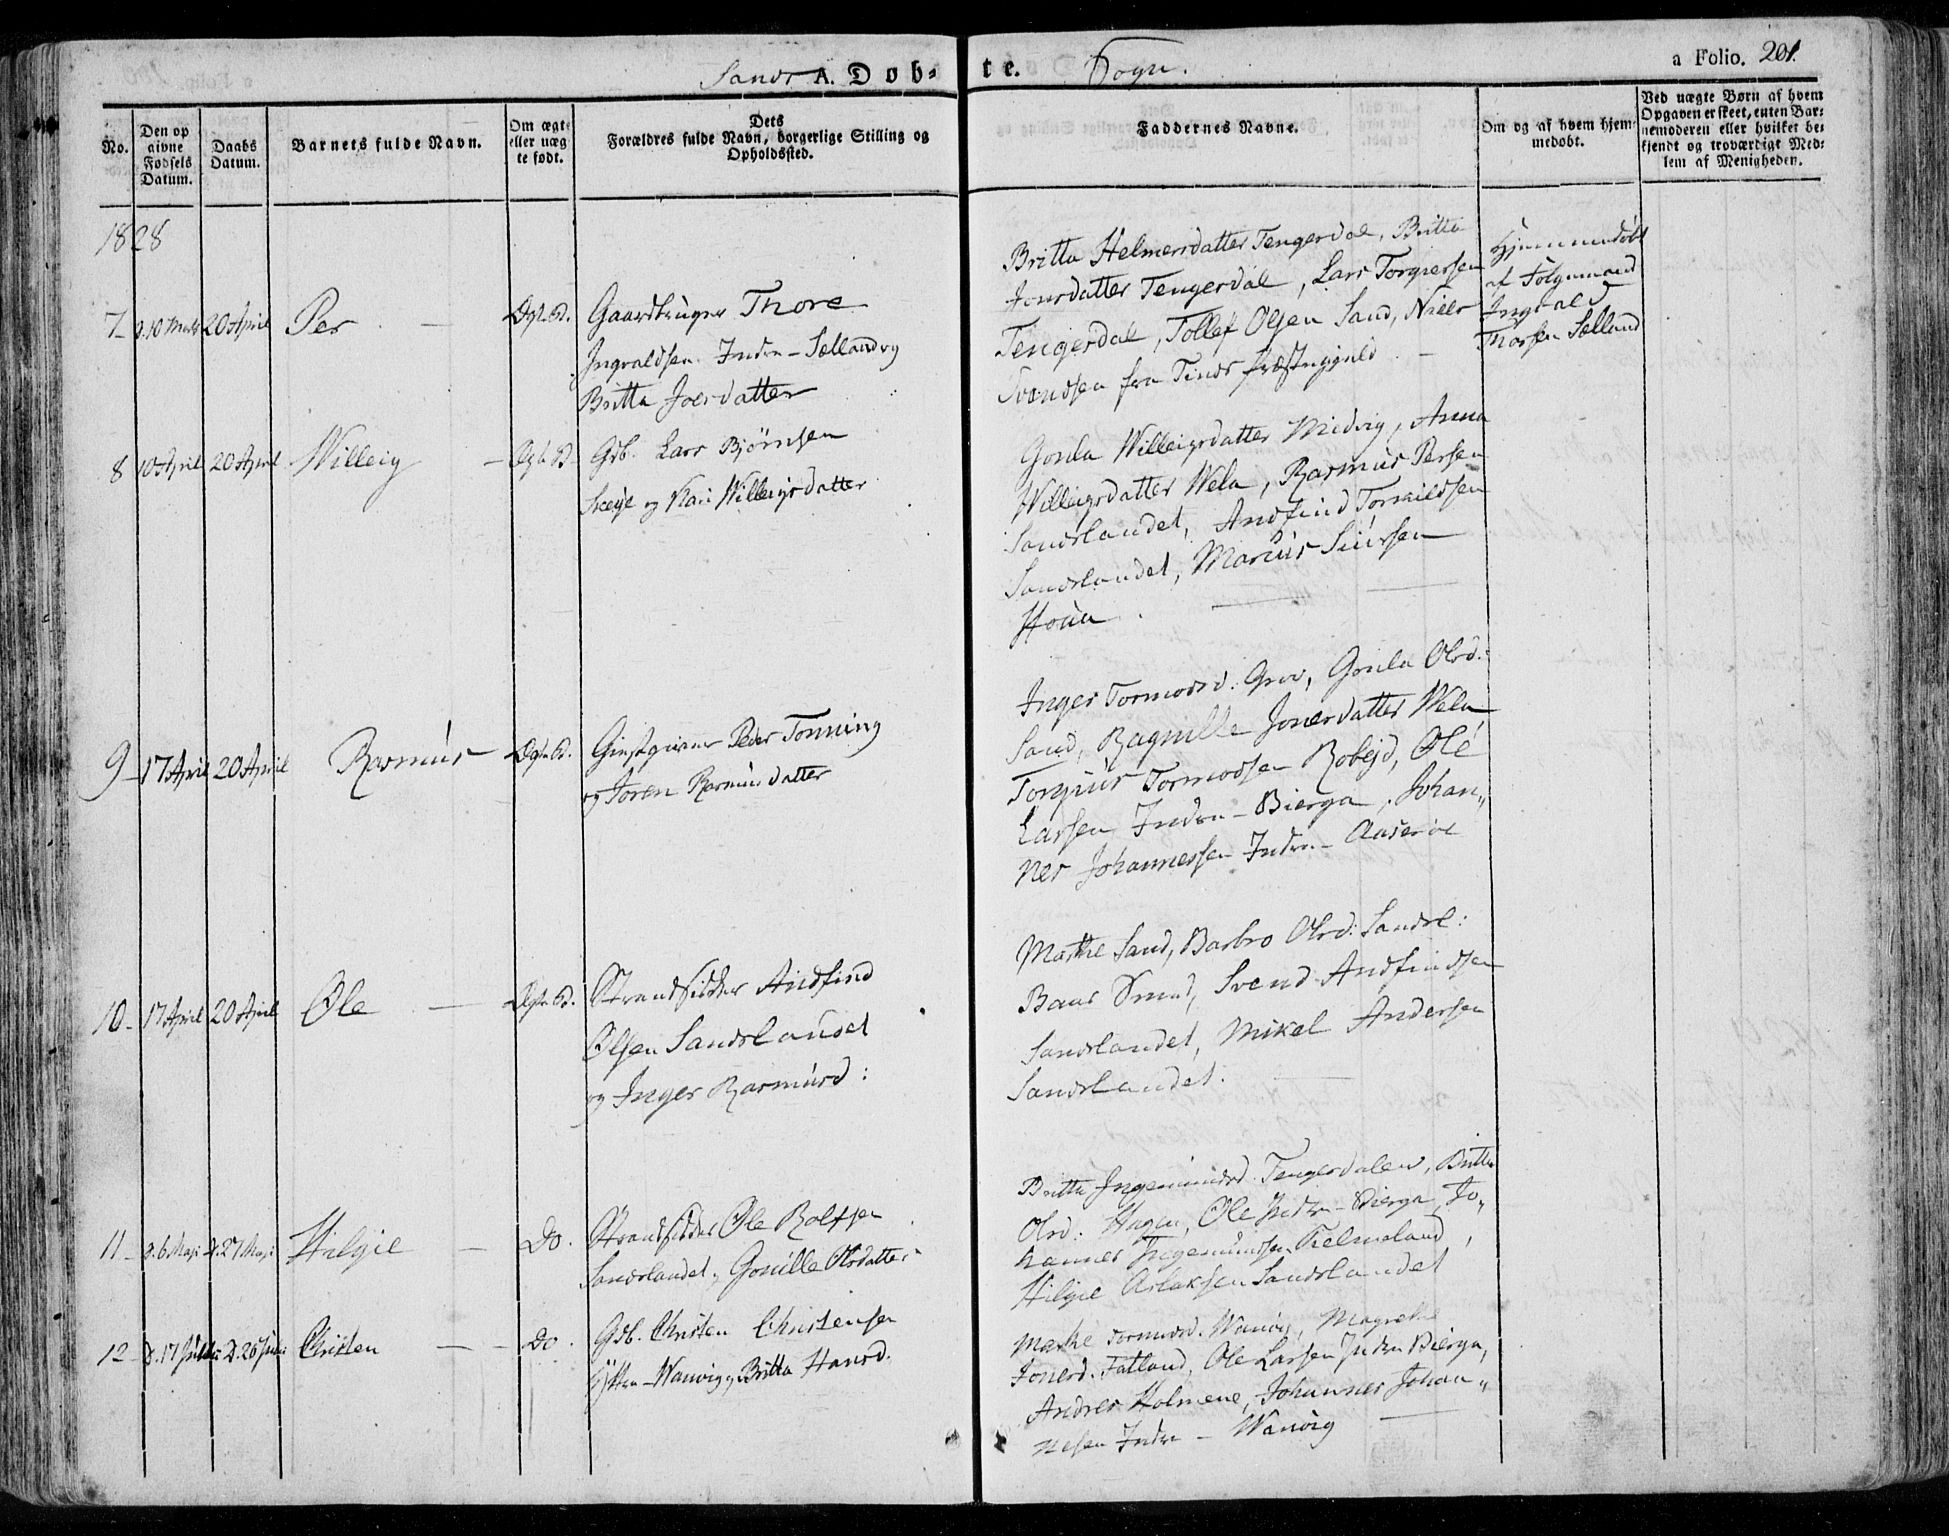 Sands A. Døb-
te. Sogn.
a Folio. 201.
No.
Den op
givne
Fødsels
Datum.
Daabs
Datum.
Barnets fulde Navn.
Om ægte
eller uæg
te født.
Dets
Forældres fulde Navn, borgerlige Stilling og
Opholdssted.
Faddernes Navne.
Om og af hvem hjem-
medøbt.
Ved uægte Børn af hvem
Opgaven er skeet, enten Bar-
nemoderen eller hvilket be-
kjendt og troværdigt Med-
lem af Menigheden.
1828
7 20 April Per — Ægte B.
Gaardbruger Thore
Ingvaldsen Indre-Sælland og
Britta Joersdatter
Britta Helmersdatter Tengesdal, Britta
Jonsdatter Tengesdal, Lars Torgiersen
Tengesdal, Tollef Olsen Sand, Niels
Svendsen fra Tinds Præstegjeld. —
Hjemmedøbt
af Følgemand
Ingvald
Thorsen Sælland
8 10 April 20 April Willeig — Ægte B.
Gdb. Lars Bjørnsen
Skeije og Kari Willeigsdatter
Gonla Willeigsdatter Midvig, Anna
Willeigsdatter Wela, Rasmus Persen
Sandslandet, Andfind Torkildsen
Sandslandet, Marcus Siursen
Houa.
9 17 April 20 April Rasmus Ægte B.
Giestgiver Peder Tonning
og Joren Rasmusdatter
Inger Tormodsd. Grov, Gonla Olsd.
Sand, Ragnille Jonesdatter Wela
Torgius Tormodsen Robejd, Ole
Larsen Indre-Bierga, Johan„
nes Johannessen Indre-
10 17 April 20 April Ole — Ægte B.
Strandsidder Andfind
Olsen Sandslandet
og Inger Rasmusd:
Marthe Sand, Barbro Olsd: Sandsl:
Baar Smed, Svend Andfindsen
Sandslandet, Mikel Andersen
Sandslandet.
11 d. 6 Maji d. 27 Maji Helgie — Do.
Strandsidder Ole Rolfsen
Sandslandet og Gonille Olsdatter
Britta Ingemundsd. Tengesdalen, Britta
Olsd. Hagen, Ole Indre-Bierga, Jo„
hannes Ingemundsen Fielmeland,
Helgie Aslaksen Sandslandet
12 d. 17 D. 26 Christen — Do.
Gdb. Christen Christensen
Ÿttre-Wanvig og Britta Hansd.
Marthe Tormodsd. Wanvig, Magrethe
Jonesd. Fatland, Ole Larsen Indre Bierga,
Andres Holmene, Johannes Johan„
nesen Indre - Wanvig